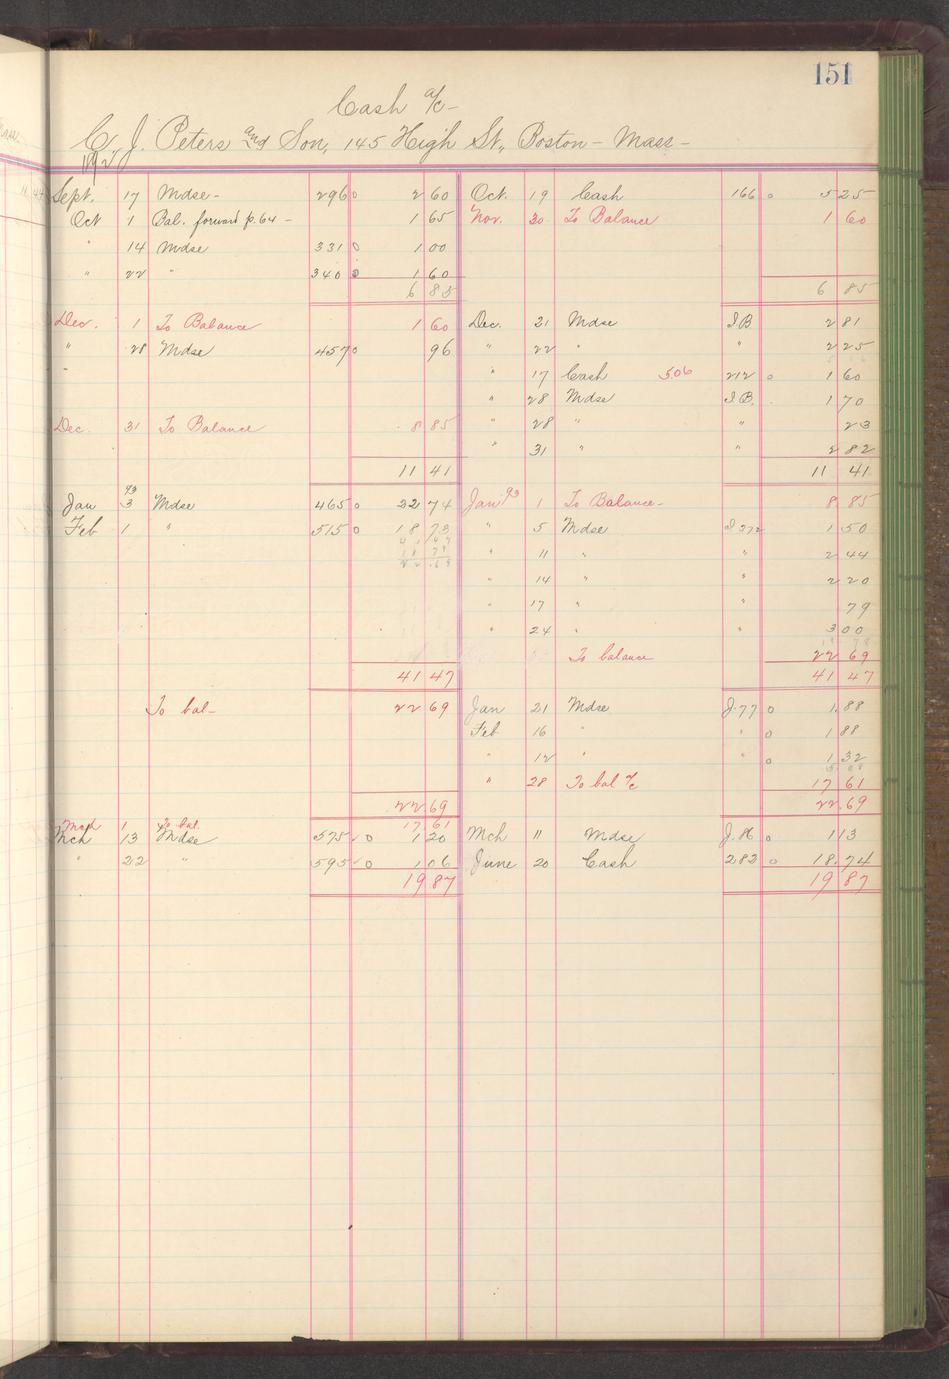 151
Cash a/c-
C. J. Peters and Son, 145 High St., Boston - Mass -
1892
Sept. 17 Mdse- 296 0 2 60 Oct. 19 Cash 166 0 5 25
Oct 1 Bal. forward p.64 - 1 65 Nov. 30 To Balance 1 60
" 14 Mdse 331 0 1 00
" 22 " 340 0 1 60
6 85 6 85
Dec. 1 To Balance 1 60 Dec. 21 Mdse I.B 2 81
" 28 Mdse 457 0 96 " 22 " " 2 25
" 17 Cash 5.06 212 0 1 60
" 28 Mdse I.B. 1 70
Dec. 31 To Balance 8 85 " 28 " " 23
" 31 " " 2 82
11 41 11 41
93
Jan 3 Mdse 465 0 22 74 Jan 93 1 To Balance- 8 85
Feb 1 " 515 0 18 73 " 5 Mdse 1 50
41 47
18 78
22.69
" 11 " " 2 44
" 14 " " 2 20
" 17 " 79
" 24 " " 3 00
To balance 22 69
41 47 41 47
To bal- 22 69 Jan 21 Mdse J.77 0 1.88
Feb 16 " " 0 1 88
" 12 " " 0 1 32
" 28 To bal a/c 17 61
22 69 22.69
Mch 1 To bal. 17 61
Mch 13 Mdse 575 0 1 20 Mch 11 Mdse J.86 0 1 13
" 22 " 595 0 1 06 June 20 Cash 282 0 18.74
19 87 19 87